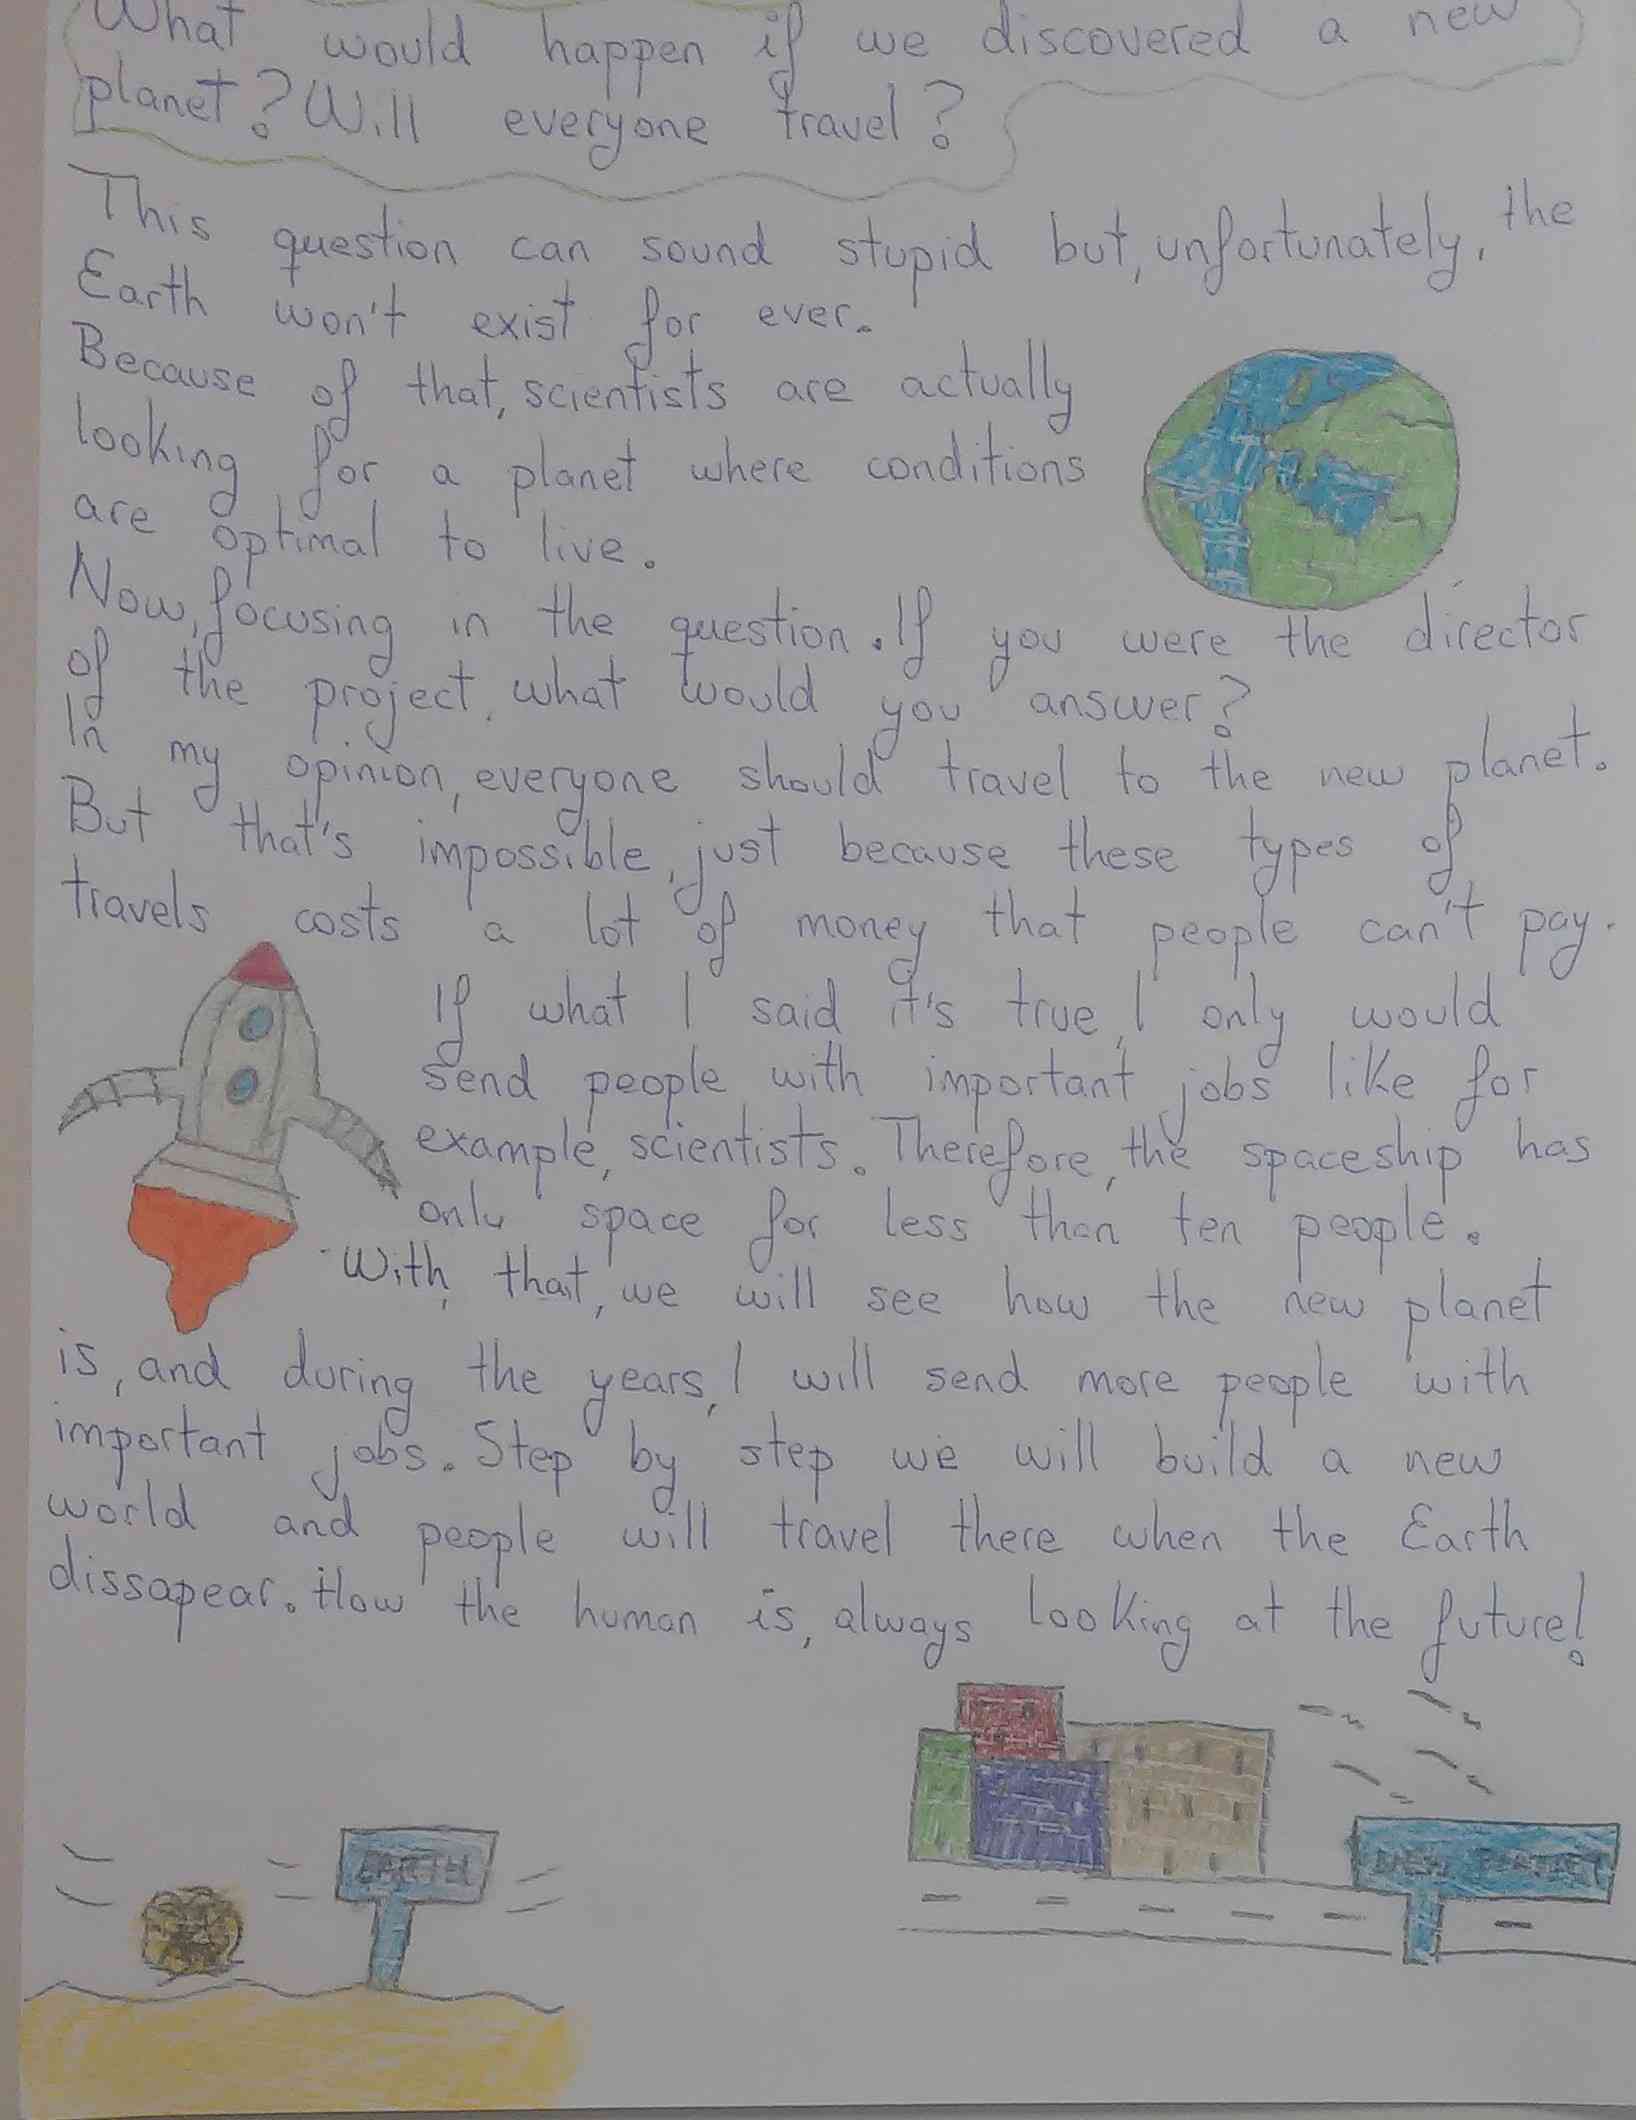 What would happen if we discovered a new
planet? Will everyone travel?
This question can sound stupid but, unfortunately, the
Earth won't exist for ever.
Because of that, scientists are actually
looking for a planet where conditions
are optimal to live.
Now, focusing in the question. If you were the director
of the project, what would you answer?
In my opinion, everyone should travel to the new planet.
But that's impossible, just because these types of
travels costs a lot of money that people can't pay.
If what I said it's true, I only would
send people with important jobs like for
example, scientists. Therefore, the spaceship has
only space for less than ten people.
With that, we will see how the new planet
is, and during the years, I will send more people with
important jobs. Step by step we will build a new
world and people will travel there when the Earth
dissapear. How the human is, always looking at the future!
EARTH
NEW PLANET